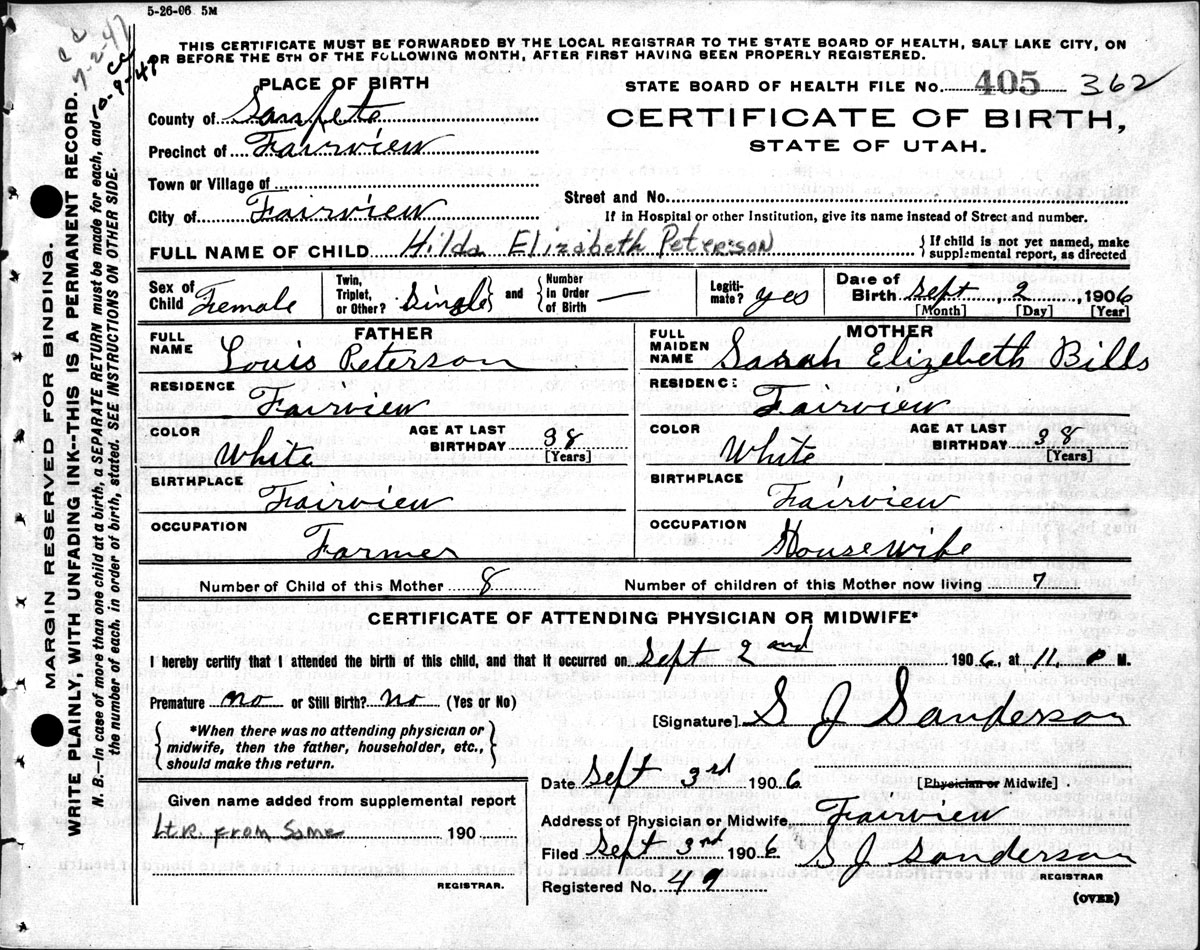 5-26-06 5M
THIS CERTIFICATE MUST BE FORWARDED BY THE LOCAL REGISTRAR TO THE STATE BOARD OF HEALTH, SALT LAKE CITY, ON
OR BEFORE THE 5TH OF THE FOLLOWING MONTH, AFTER FIRST HAVING BEEN PROPERLY REGISTERED.
PLACE OF BIRTH
STATE BOARD OF HEALTH FILE No. 405 362
County of Sanpete
CERTIFICATE OF BIRTH,
STATE OF UTAH.
Precinct of Fairview
Town or Village of
Street and No.
City of Fairview
If in Hospital or other Institution, give its name instead of Street and number.
FULL NAME OF CHILD Hilda Elizabeth Peterson
{ If child is not yet named, make
supplemental report, as directed
Sex of Child Female
Twin, Triplet, or Other? Single } and { Number in Order of Birth —
Legitimate? yes
Date of Birth Sept 2, 1906
[Month] [Day] [Year]
FATHER
FULL NAME Louis Peterson
RESIDENCE Fairview
COLOR White
AGE AT LAST BIRTHDAY 38 [Years]
BIRTHPLACE Fairview
OCCUPATION Farmer
MOTHER
FULL MAIDEN NAME Sarah Elizebeth Bills
RESIDENCE Fairview
COLOR White
AGE AT LAST BIRTHDAY 38 [Years]
BIRTHPLACE Fairview
OCCUPATION Housewife
Number of Child of this Mother 8
Number of children of this Mother now living 7
CERTIFICATE OF ATTENDING PHYSICIAN OR MIDWIFE*
I hereby certify that I attended the birth of this child, and that it occurred on Sept 2nd 1906, at 11. P M.
Premature no or Still Birth? no (Yes or No)
[Signature] S J Sanderson
{ *When there was no attending physician or
midwife, then the father, householder, etc.,
should make this return. }
Date Sept 3rd 1906
[Physician or Midwife]
Given name added from supplemental report
Ltr. from Same 190
REGISTRAR.
Address of Physician or Midwife Fairview
Filed Sept 3rd 1906 S J Sanderson
REGISTRAR
Registered No. 49
(OVER)
MARGIN RESERVED FOR BINDING.
WRITE PLAINLY, WITH UNFADING INK--THIS IS A PERMANENT RECORD.
N. B.—In case of more than one child at a birth, a SEPARATE RETURN must be made for each, and
the number of each, in order of birth, stated. SEE INSTRUCTIONS ON OTHER SIDE.